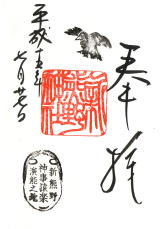 奉拝
平成十五年
七月廿七日
新熊野
神事猿楽
演能之地